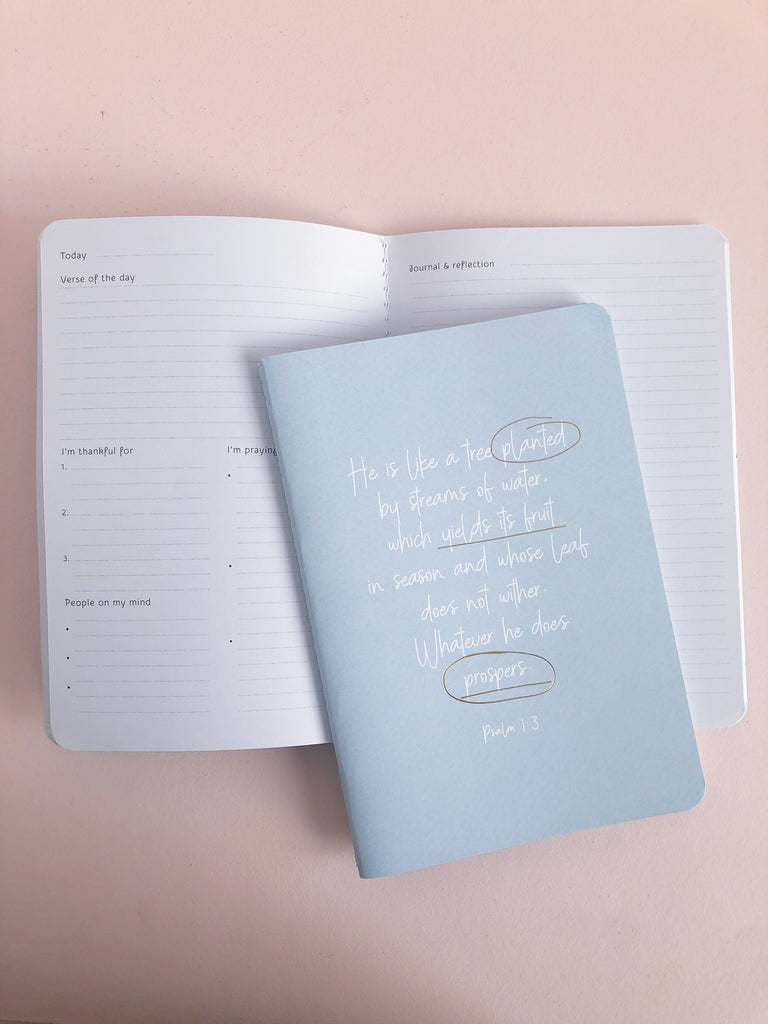 Today
Verse of the day
I'm thankful for
1.
2.
3.
People on my mind
I'm praying
Journal & reflection
He is like a tree planted
by streams of water,
which yields its fruit
in season and whose leaf
does not wither.
Whatever he does
prospers.
Psalm 1:3